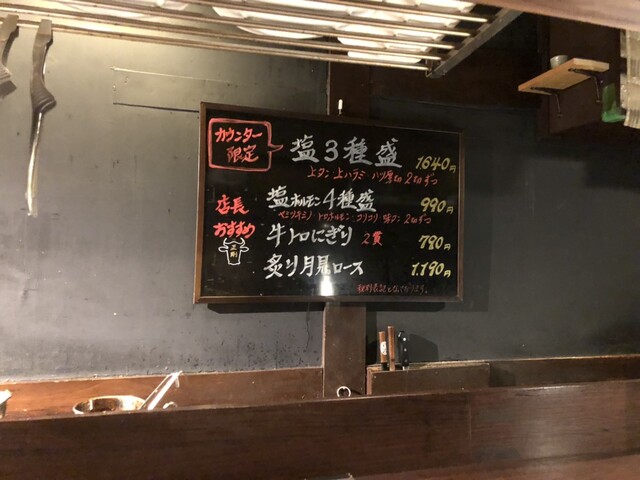 カウンター
限定
塩3種盛 1640円
上タン・上ハラミ・ハツ厚切 2切ずつ
店長
おすすめ
塩ホルモン4種盛 990円
コリコリ 2切ずつ
牛トロにぎり 2貫 780円
炙り月見ロース 1.190円